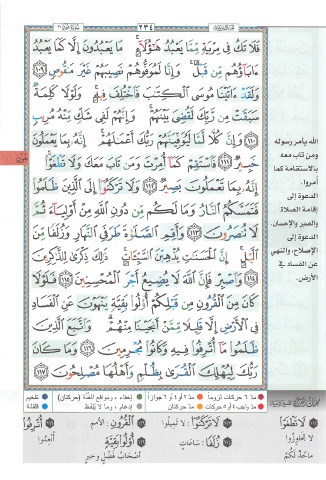 ٢٣٤
فَلَا تَكُ فِي مِرْيَةٍ مِّمَّا يَعْبُدُ هَٰؤُلَاءِ ۚ مَا يَعْبُدُونَ إِلَّا كَمَا يَعْبُدُ
ءَابَاؤُهُم مِّن قَبْلُ ۚ وَإِنَّا لَمُوَفُّوهُمْ نَصِيبَهُمْ غَيْرَ مَنقُوصٍ ١٠٩
وَلَقَدْ ءَاتَيْنَا مُوسَى الْكِتَابَ فَاخْتُلِفَ فِيهِ ۚ وَلَوْلَا كَلِمَةٌ
سَبَقَتْ مِن رَّبِّكَ لَقُضِيَ بَيْنَهُمْ ۚ وَإِنَّهُمْ لَفِي شَكٍّ مِّنْهُ مُرِيبٍ
١١٠ وَإِنَّ كُلًّا لَّمَّا لَيُوَفِّيَنَّهُمْ رَبُّكَ أَعْمَالَهُمْ ۚ إِنَّهُ بِمَا يَعْمَلُونَ
خَبِيرٌ ١١١ فَاسْتَقِمْ كَمَا أُمِرْتَ وَمَن تَابَ مَعَكَ وَلَا تَطْغَوْا ۚ
إِنَّهُ بِمَا تَعْمَلُونَ بَصِيرٌ ١١٢ وَلَا تَرْكَنُوا إِلَى الَّذِينَ ظَلَمُوا
فَتَمَسَّكُمُ النَّارُ وَمَا لَكُم مِّن دُونِ اللَّهِ مِنْ أَوْلِيَاءَ ثُمَّ
لَا تُنصَرُونَ ١١٣ وَأَقِمِ الصَّلَاةَ طَرَفَيِ النَّهَارِ وَزُلَفًا مِّنَ
اللَّيْلِ ۚ إِنَّ الْحَسَنَاتِ يُذْهِبْنَ السَّيِّئَاتِ ۚ ذَٰلِكَ ذِكْرَىٰ لِلذَّاكِرِينَ
١١٤ وَاصْبِرْ فَإِنَّ اللَّهَ لَا يُضِيعُ أَجْرَ الْمُحْسِنِينَ ١١٥ فَلَوْلَا
كَانَ مِنَ الْقُرُونِ مِن قَبْلِكُمْ أُولُوا بَقِيَّةٍ يَنْهَوْنَ عَنِ الْفَسَادِ
فِي الْأَرْضِ إِلَّا قَلِيلًا مِّمَّنْ أَنجَيْنَا مِنْهُمْ ۗ وَاتَّبَعَ الَّذِينَ
ظَلَمُوا مَا أُتْرِفُوا فِيهِ وَكَانُوا مُجْرِمِينَ ١١٦ وَمَا كَانَ
رَبُّكَ لِيُهْلِكَ الْقُرَىٰ بِظُلْمٍ وَأَهْلُهَا مُصْلِحُونَ ١١٧
الله يأمر رسوله
ومن تاب معه
بالاستقامة كما
أمروا.
الدعوة إلى
إقامة الصلاة
والصبر والإحسان.
الدعوة إلى
الإصلاح، والنهي
عن الفساد في
الأرض.
هود
مدّ ٦ حركات لزوماً مدّ ٢ أو ٤ أو ٦ جوازاً إخفاء، ومواقع الغنّة (حركتان) تفخيم
مدّ واجب ٤ أو ٥ حركات مدّ حركتان إدغام، وما لا يُلفظ قلقلة
لَا تَطْغَوْا
لا تجاوزوا
ما حُدّ لكم
لَا تَرْكَنُوا : لا تميلوا
زُلَفًا : ساعات
الْقُرُونِ : الأمم
أُولُوا بَقِيَّةٍ
أصحاب فضل وخير
أُتْرِفُوا
أُنعموا